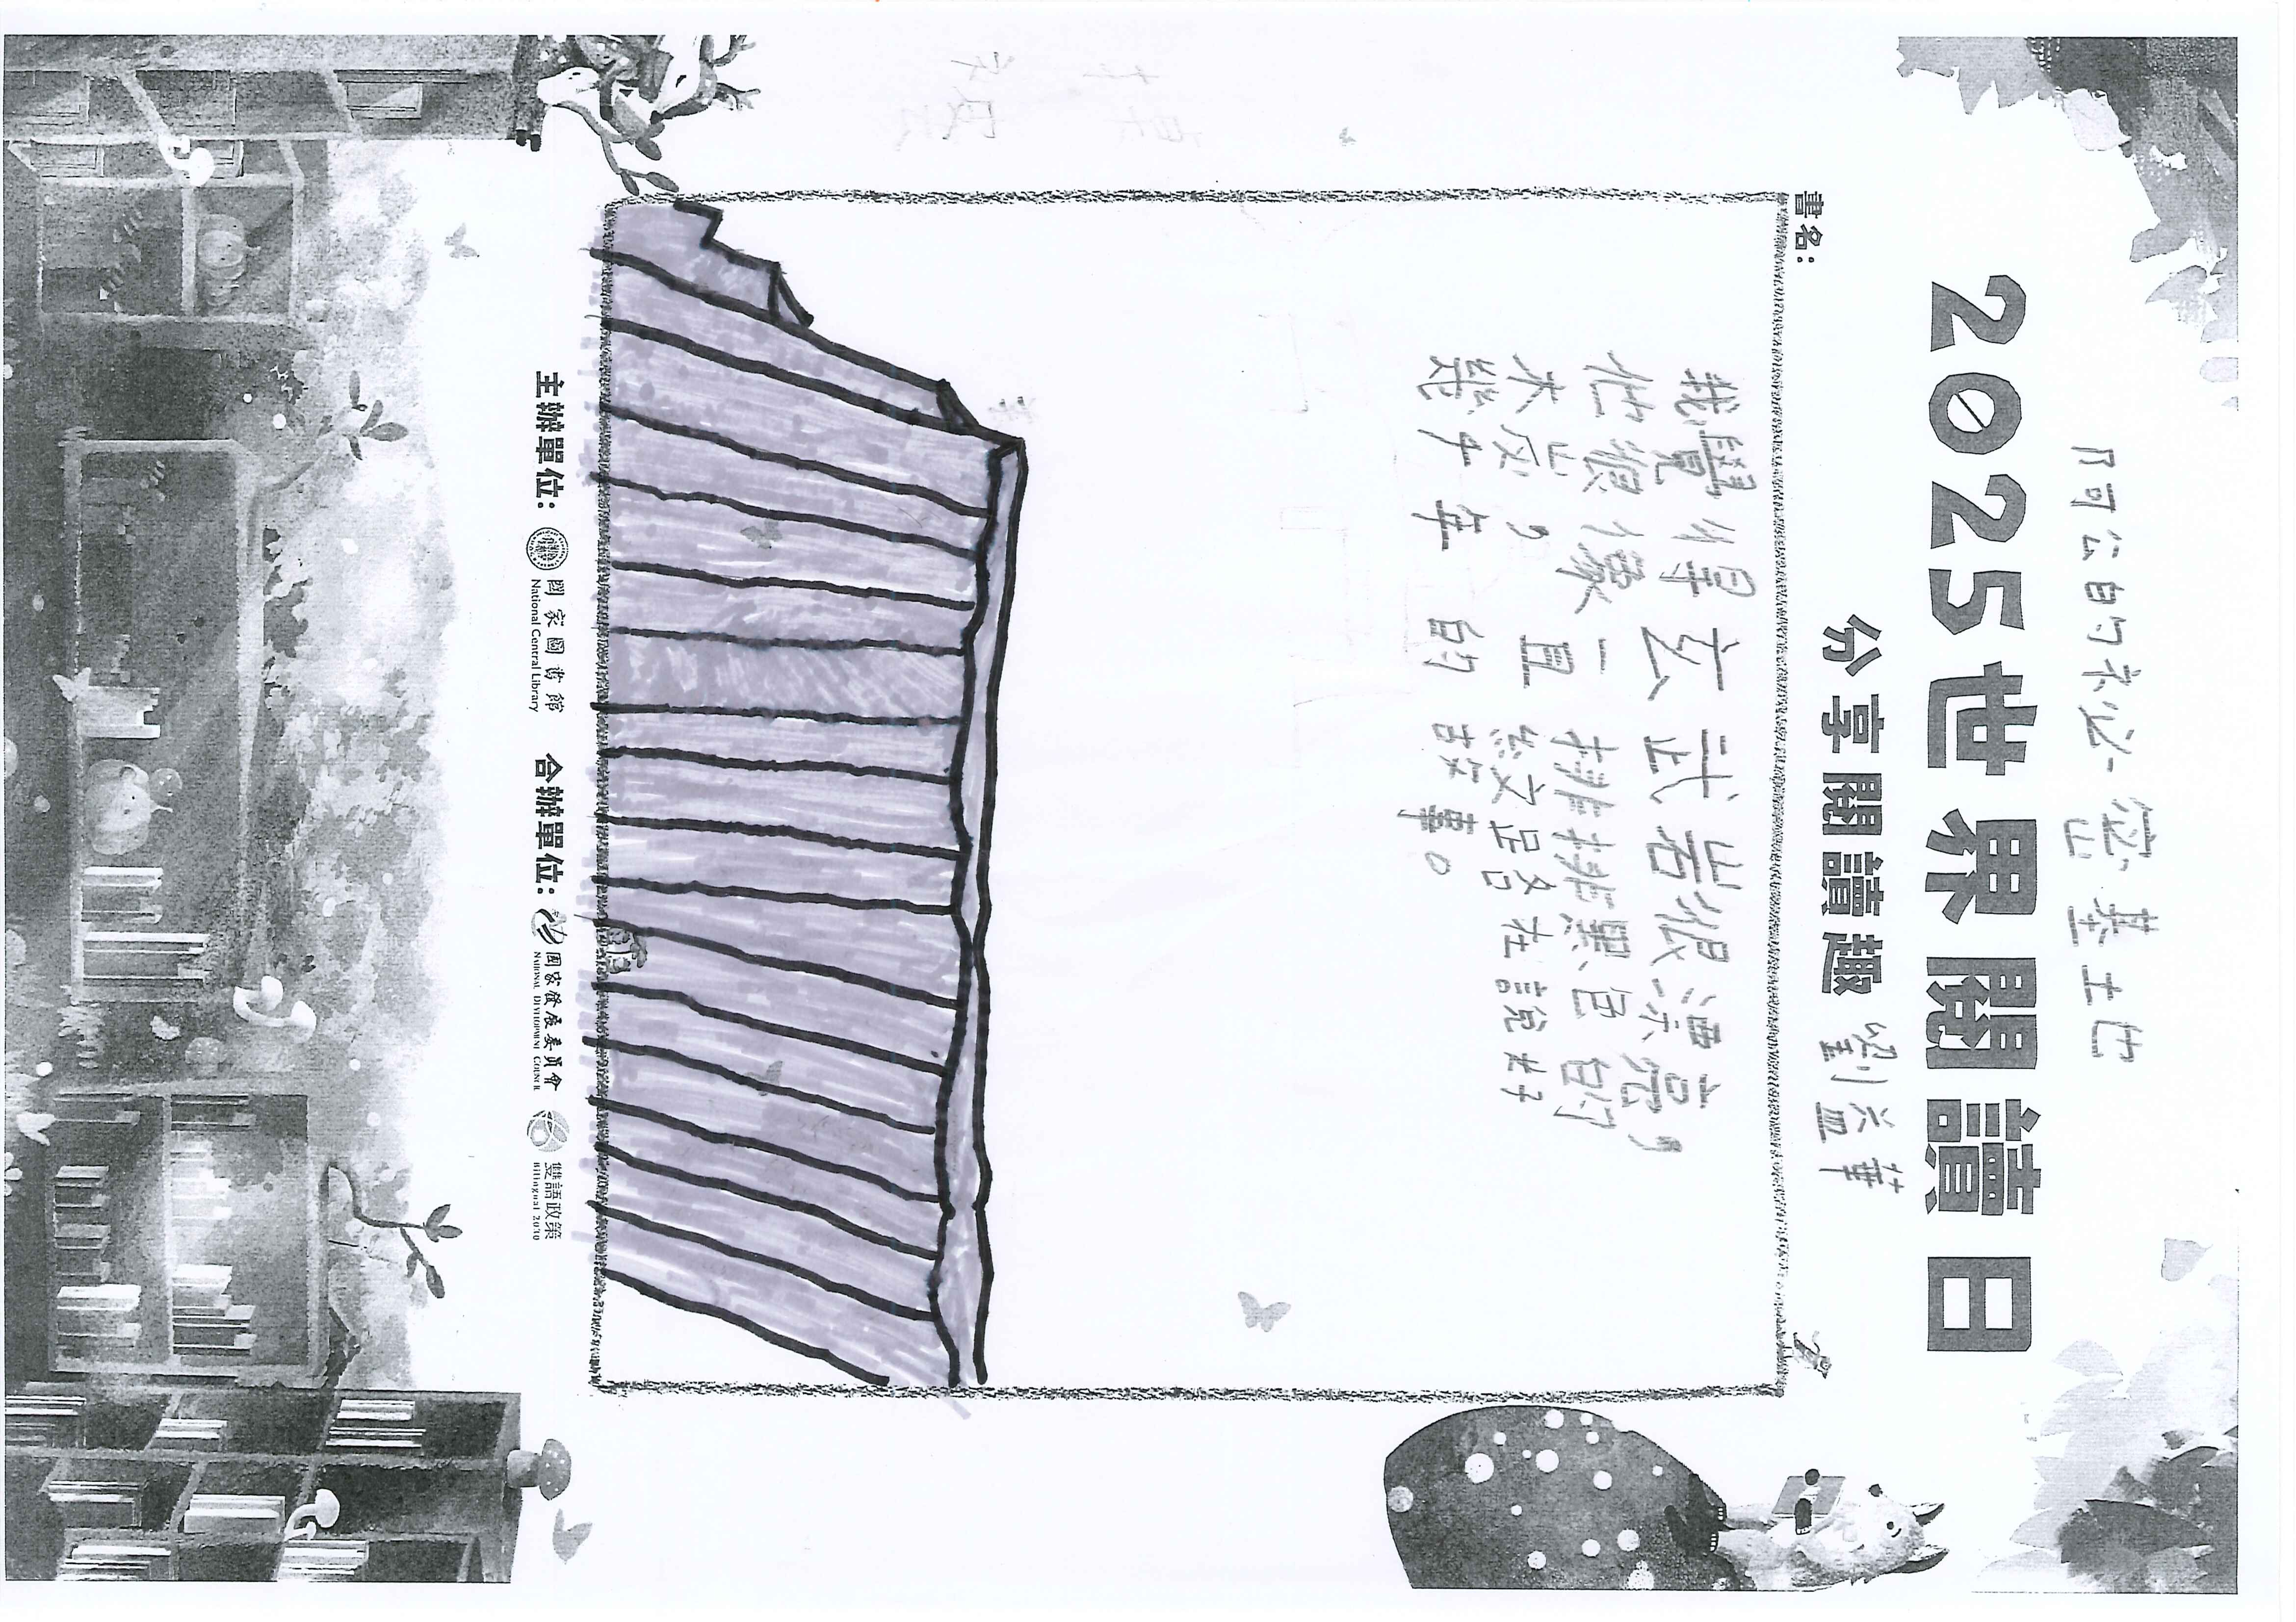 阿公的祕密基地
2025世界閱讀日
分享閱讀趣 劉益華
書名：
我覺得玄武岩很漂亮，
他很像一排排黑色的
木炭，一直在說好
幾千年的故事。
主辦單位： 國家圖書館 National Central Library 合辦單位： 國家發展委員會 NATIONAL DEVELOPMENT COUNCIL 雙語政策 Bilingual 2030